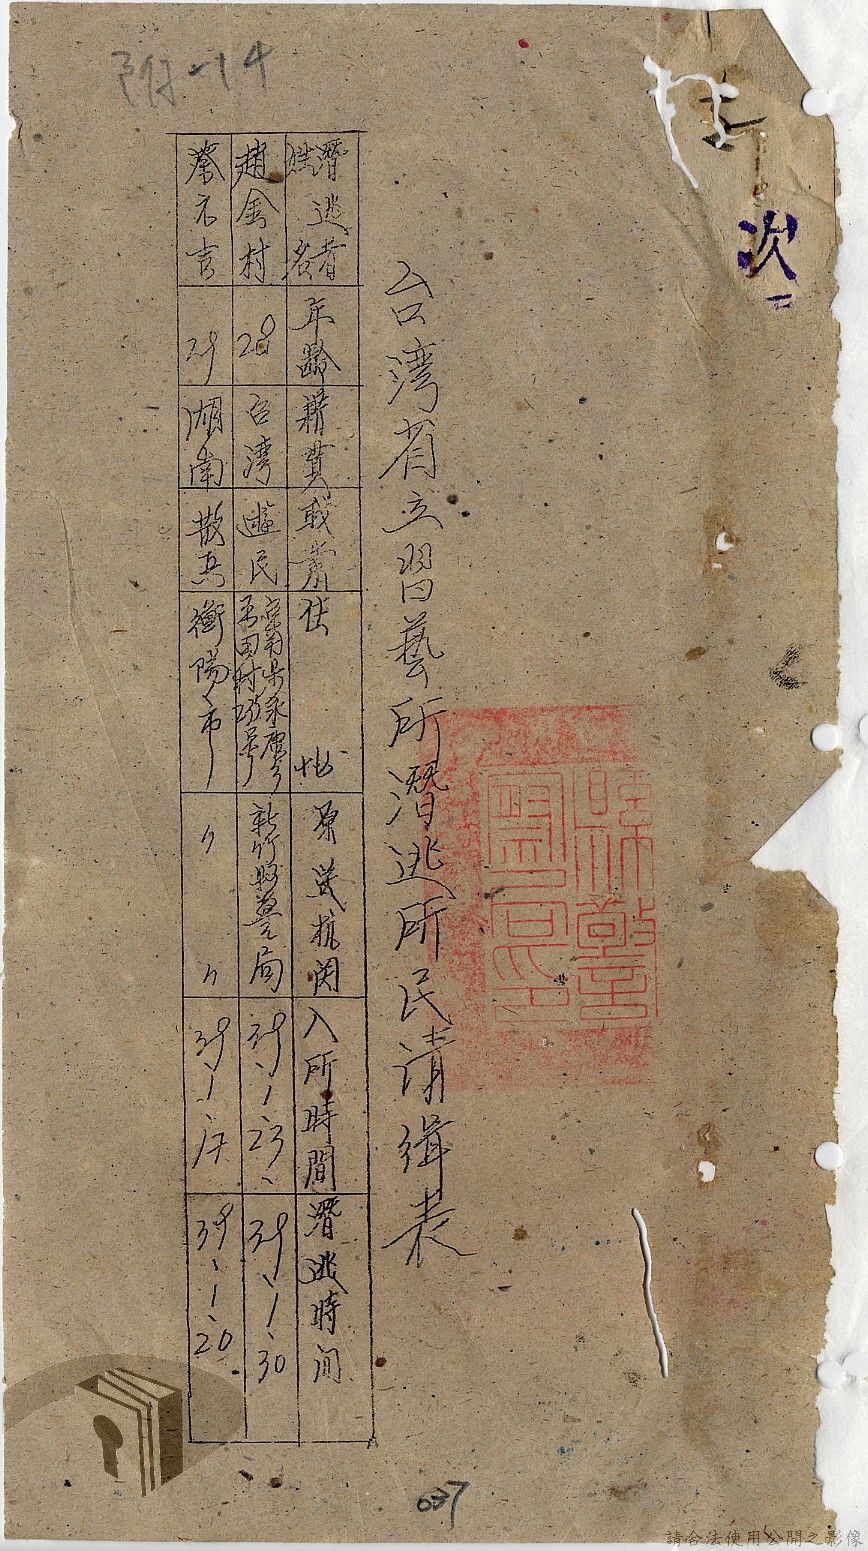 附-14
次
台湾省立習藝所潛逃所民清緝表
潛逃者姓名 年齡 籍貫 职業 住址 原送机関 入所時間 潛逃時间
趙金村 28 台湾 遊民 新竹縣警局 39、1、23、 39、1、30
蔡六吉 29 湖南 散兵 衡陽市 〃 〃 39、1、17 39、1、20
037
請合法使用公開之影像